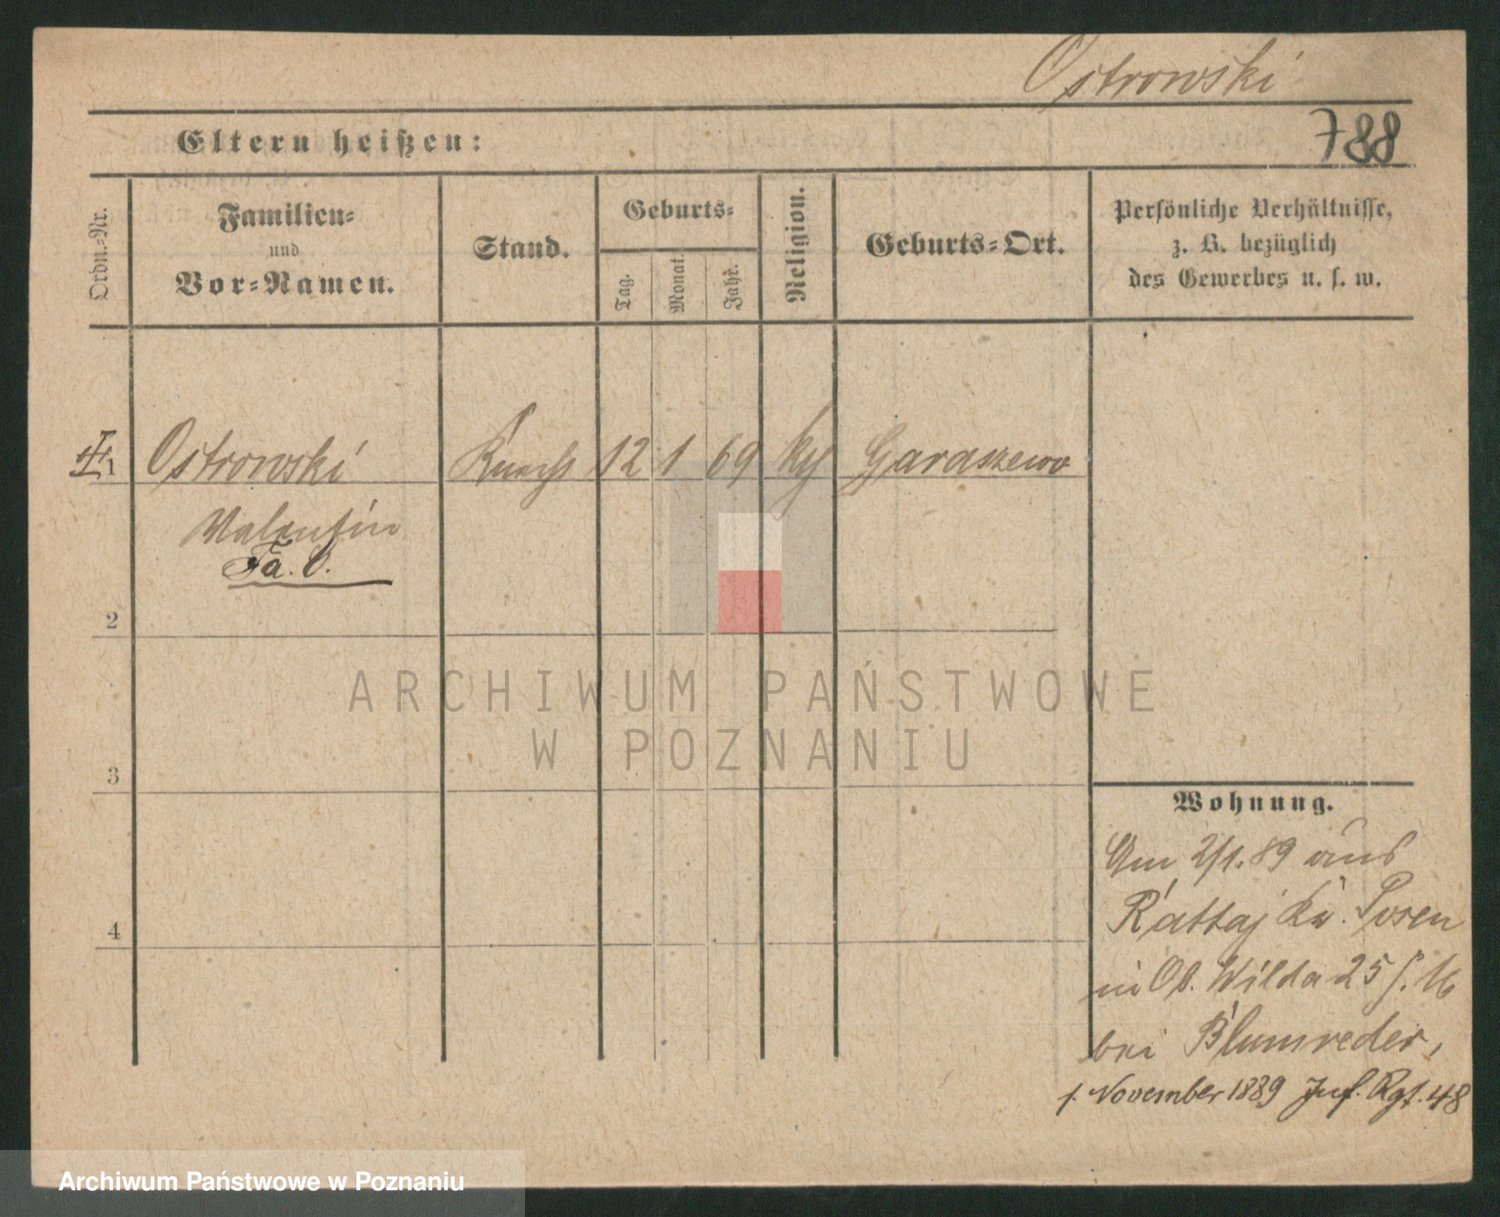 Ostrowski
788
Eltern heißen:
Ordn.-Nr.
Familien-
und
Vor-Namen.
Stand.
Geburts-
Tag.
Monat.
Jahr.
Religion.
Geburts-Ort.
Persönliche Verhältnisse,
z. B. bezüglich
des Gewerbes u. s. w.
1 Ostrowski Knecht 12 1 69 Garaszewo
Valentin
2
3
4
Wohnung.
Am 2/1.89 aus
Rattaj Kr. Posen
in Ob. Wilda 25
bei Blumreder,
1. November 1889 Inf. Rgt. 48
ARCHIWUM PAŃSTWOWE
W POZNANIU
Archiwum Państwowe w Poznaniu